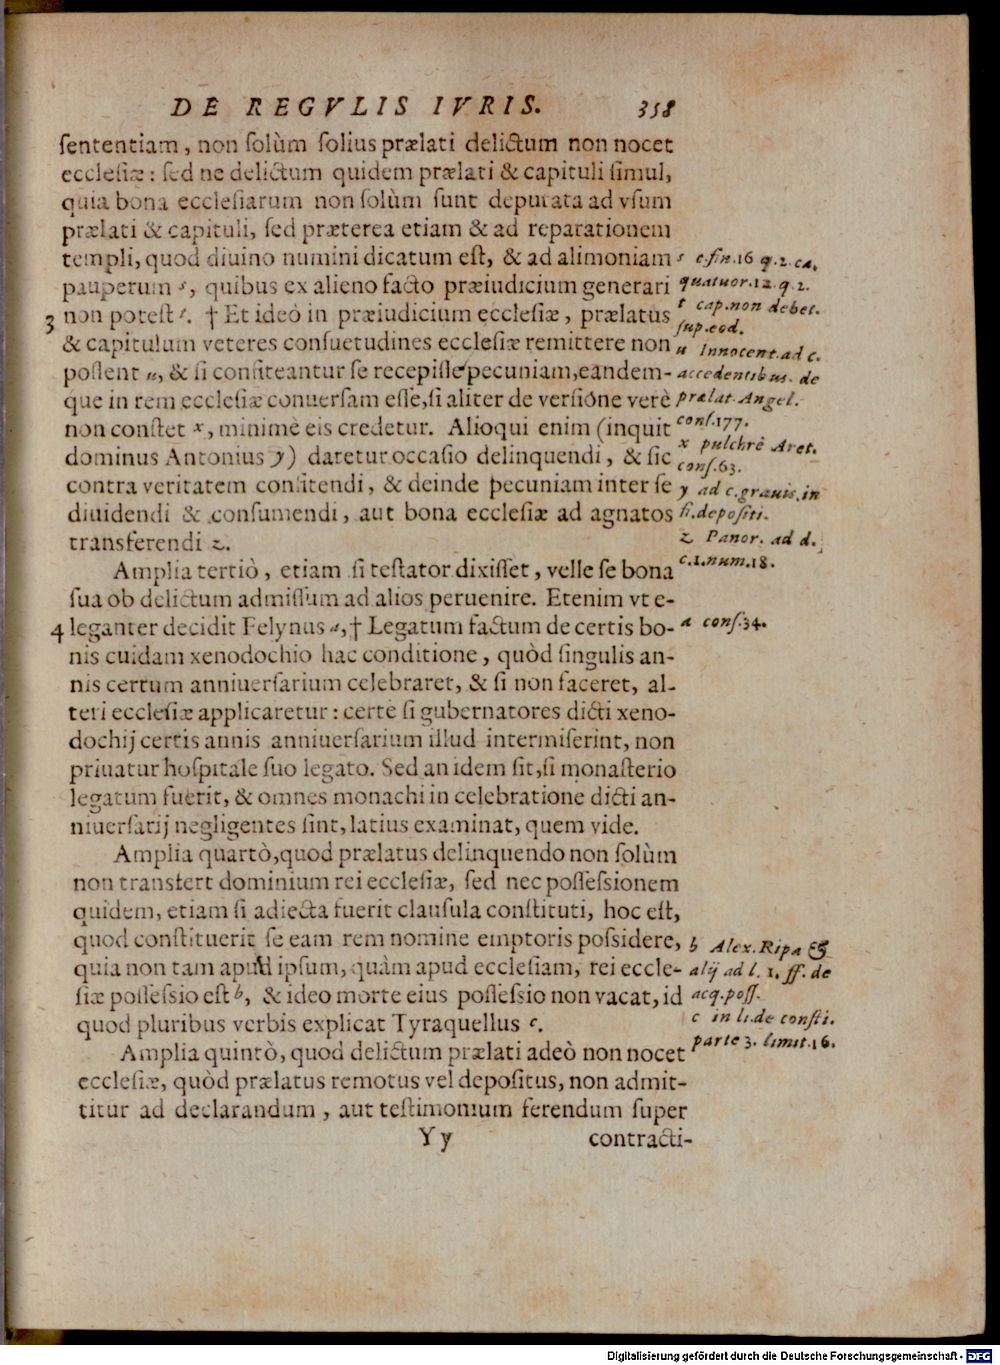 DE REGVLIS IVRIS. 358
sententiam, non solùm solius prælati delictum non nocet
ecclesiæ: sed ne delictum quidem prælati & capituli simul,
quia bona ecclesiarum non solùm sunt deputata ad vsum
prælati & capituli, sed præterea etiam & ad reparationem
templi, quod diuino numini dicatum est, & ad alimoniam
pauperum s, quibus ex alieno facto præiudicium generari
3 non potest t. † Et ideò in præiudicium ecclesiæ, prælatus
& capitulum veteres consuetudines ecclesiæ remittere non
possent u, & si confiteantur se recepisse pecuniam, eandem-
que in rem ecclesiæ conuersam esse, si aliter de versione verè
non constet x, minimè eis credetur. Alioqui enim (inquit
dominus Antonius y) daretur occasio delinquendi, & sic
contra veritatem confitendi, & deinde pecuniam inter se
diuidendi & consumendi, aut bona ecclesiæ ad agnatos
transferendi z.
Amplia tertiò, etiam si testator dixisset, velle se bona
sua ob delictum admissum ad alios peruenire. Etenim vt e-
4 leganter decidit Felynus a, † Legatum factum de certis bo-
nis cuidam xenodochio hac conditione, quòd singulis an-
nis certum anniuersarium celebraret, & si non faceret, al-
teri ecclesiæ applicaretur: certè si gubernatores dicti xeno-
dochij certis annis anniuersarium illud intermiserint, non
priuatur hospitale suo legato. Sed an idem sit, si monasterio
legatum fuerit, & omnes monachi in celebratione dicti an-
niuersarij negligentes sint, latius examinat, quem vide.
Amplia quartò, quod prælatus delinquendo non solùm
non transfert dominium rei ecclesiæ, sed nec possessionem
quidem, etiam si adiecta fuerit clausula constituti, hoc est,
quod constituerit se eam rem nomine emptoris possidere,
quia non tam apud ipsum, quàm apud ecclesiam, rei eccle-
siæ possessio est b, & ideo morte eius possessio non vacat, id
quod pluribus verbis explicat Tyraquellus c.
Amplia quintò, quod delictum prælati adeò non nocet
ecclesiæ, quòd prælatus remotus vel depositus, non admit-
titur ad declarandum, aut testimonium ferendum super
Yy contracti-
s c. fin. 16 q. 2. ca.
quatuor. 12. q. 2.
t cap. non debet.
sup. eod.
u Innocent. ad c.
accedentibus. de
prælat. Angel.
cons. 177.
x pulchrè Aret.
cons. 63.
y ad c. grauis. in
fi. depositi.
z Panor. ad d.
c. 1. num. 18.
a cons. 34.
b Alex. Ripa &
alij ad l. 1. ff. de
acq. poss.
c in li. de consti.
parte 3. limit. 16.
Digitalisierung gefördert durch die Deutsche Forschungsgemeinschaft - DFG